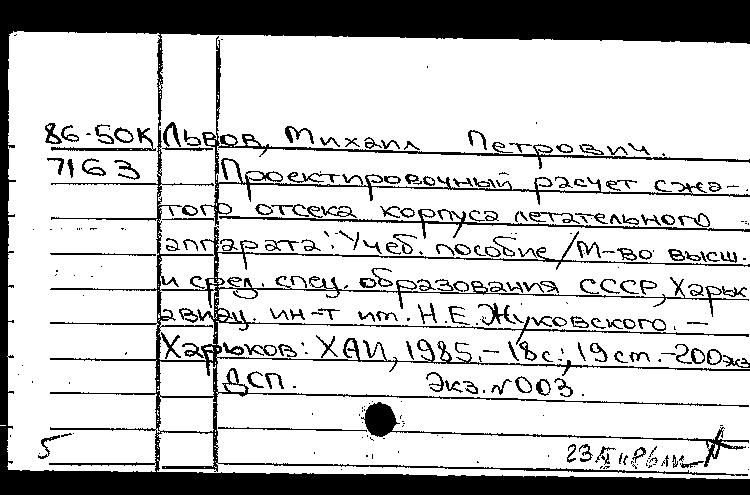 86-50К Львов, Михаил Петрович.
7163 Проектировочный расчет сжа-
того отсека корпуса летательного
аппарата: Учеб. пособие / М-во высш.
и сред. спец. образования СССР, Харьк
авиац. ин-т им. Н.Е. Жуковского. -
Харьков: ХАИ, 1985. - 18 с., 19 см. - 200 экз
ДСП. Экз. N 003.
5